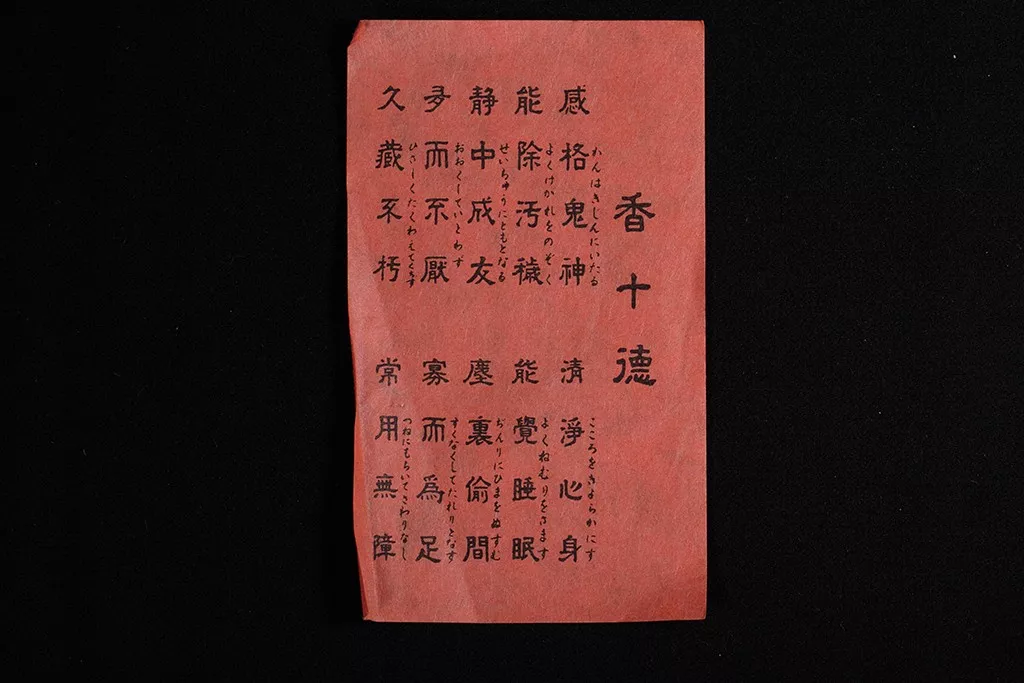 香十德
感格鬼神
かんはきじんにいたる
清淨心身
こころをきよらかにす
能除汚穢
よくけがれをのぞく
能覺睡眠
よくねむりをさます
静中成友
せいちゆうにともとなる
塵裏偷間
ぢんりにひまをぬすむ
多而不厭
おおくしていとわず
寡而為足
すくなくしてたれりとなす
久藏不朽
ひさしくたくわえてくちず
常用無障
つねにもちいてさわりなし